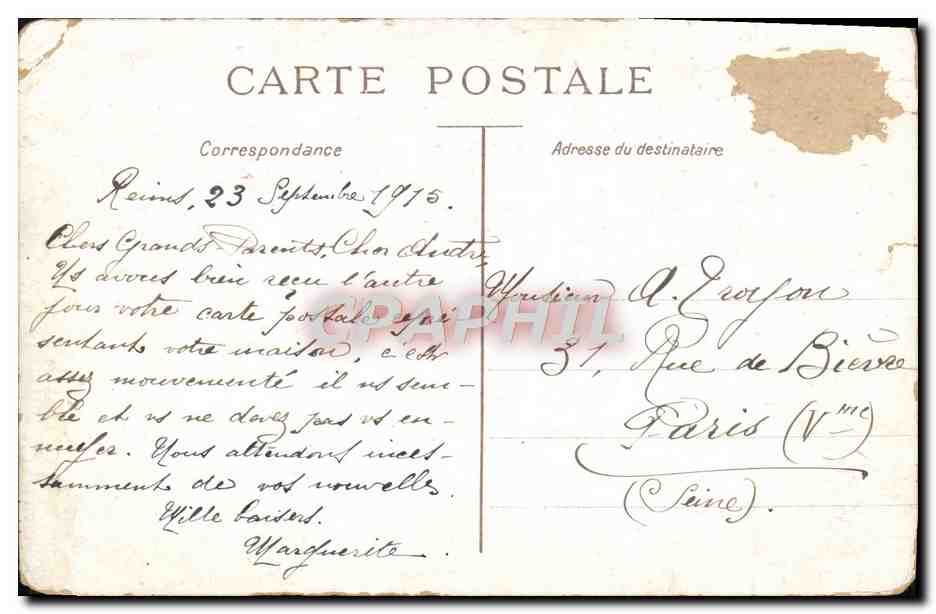 CARTE POSTALE
Correspondance
Adresse du destinataire
Reims, 23 Septembre 1915.
Chers Grands Parents, Cher André,
Ns avons bien reçu l'autre
jour votre carte postale repré
sentant votre maison, c'est
assez mouvementé il ns sem-
ble et vs ne devez pas vs en-
nuyer. Nous attendons inces-
samment de vos nouvelles.
Mille baisers.
Marguerite
Monsieur A. Troyon
31, Rue de Bièvre
Paris (Vme)
(Seine).
CPAPHIL